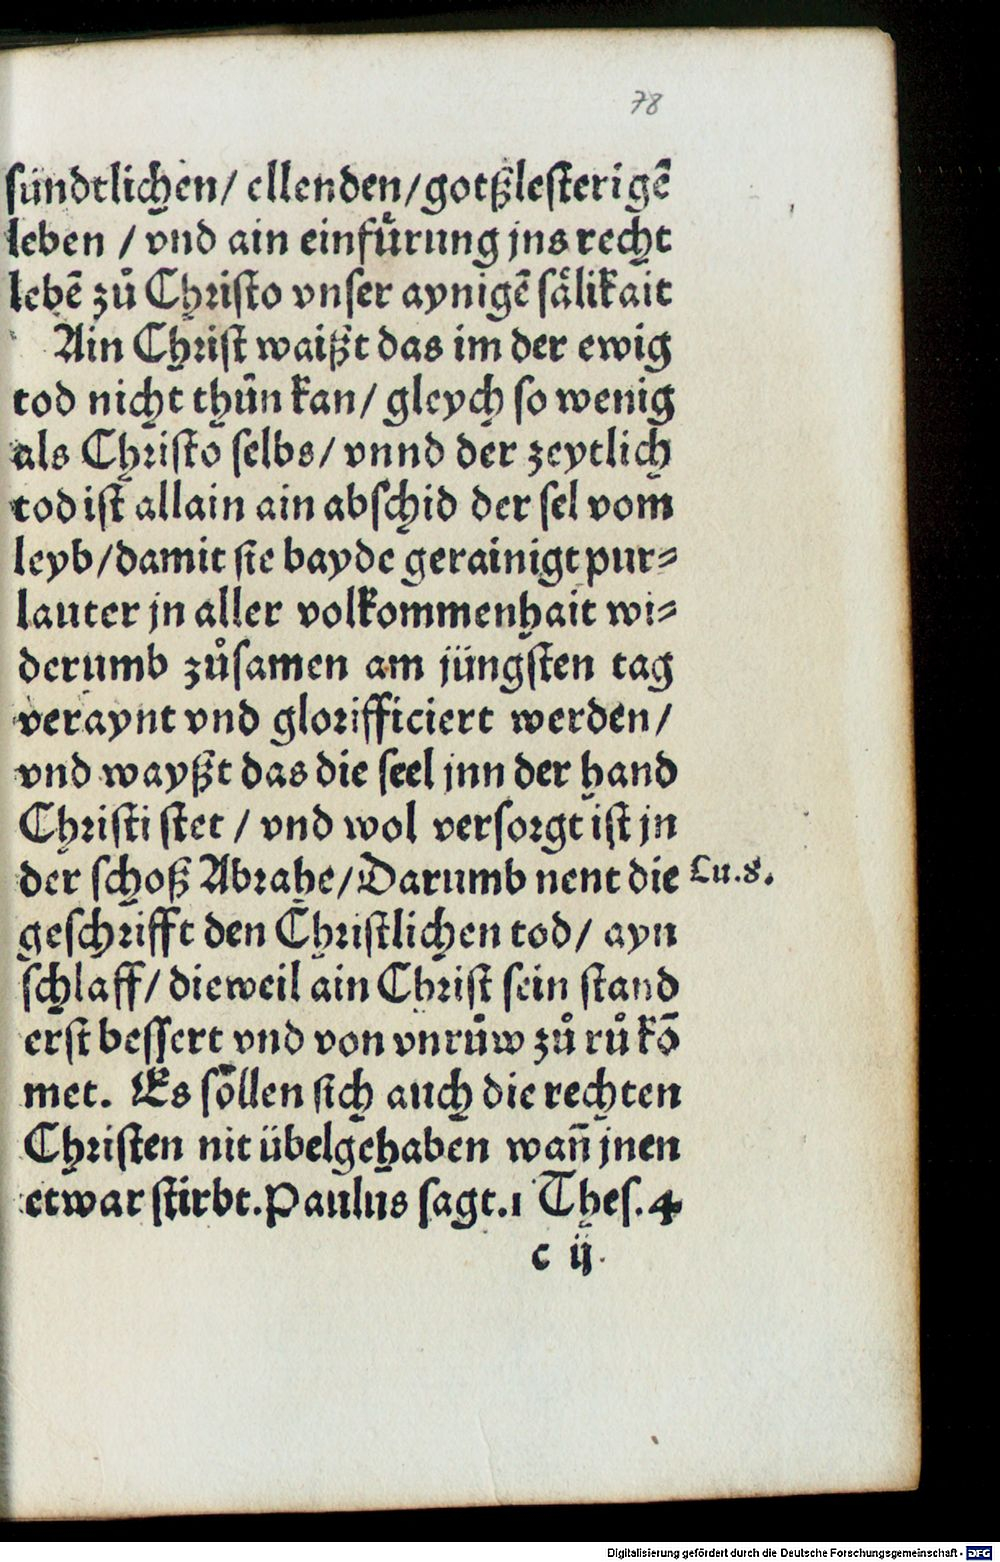 78
sündtlichen/ ellenden/gotßlesterigē
leben / vnd ain einfuͤrung jns recht
lebē zuͦ Christo vnser aynigē saͤlikait
Ain Christ waißt das im der ewig
tod nicht thuͦn kan/ gleych so wenig
als Christo selbs/ vnnd der zeytlich
tod ist allain ain abschid der sel vom
leyb/damit sie bayde gerainigt pur⸗
lauter jn aller volkommenhait wi⸗
derumb zuͦsamen am jüngsten tag
veraynt vnd glorifficiert werden/
vnd wayßt das die seel jnn der hand
Christi stet / vnd wol versorgt ist jn
der schoß Abrahe/Darumb nent die Lu.8.
geschrifft den Christlichen tod/ ayn
schlaff/ dieweil ain Christ sein stand
erst bessert vnd von vnruͦw zuͦ ruͦ kō
met. Es soͤllen sich auch die rechten
Christen nit übelgehaben wañ jnen
etwar stirbt.Paulus sagt.1 Thes.4
c ij.
Digitalisierung gefördert durch die Deutsche Forschungsgemeinschaft - DFG